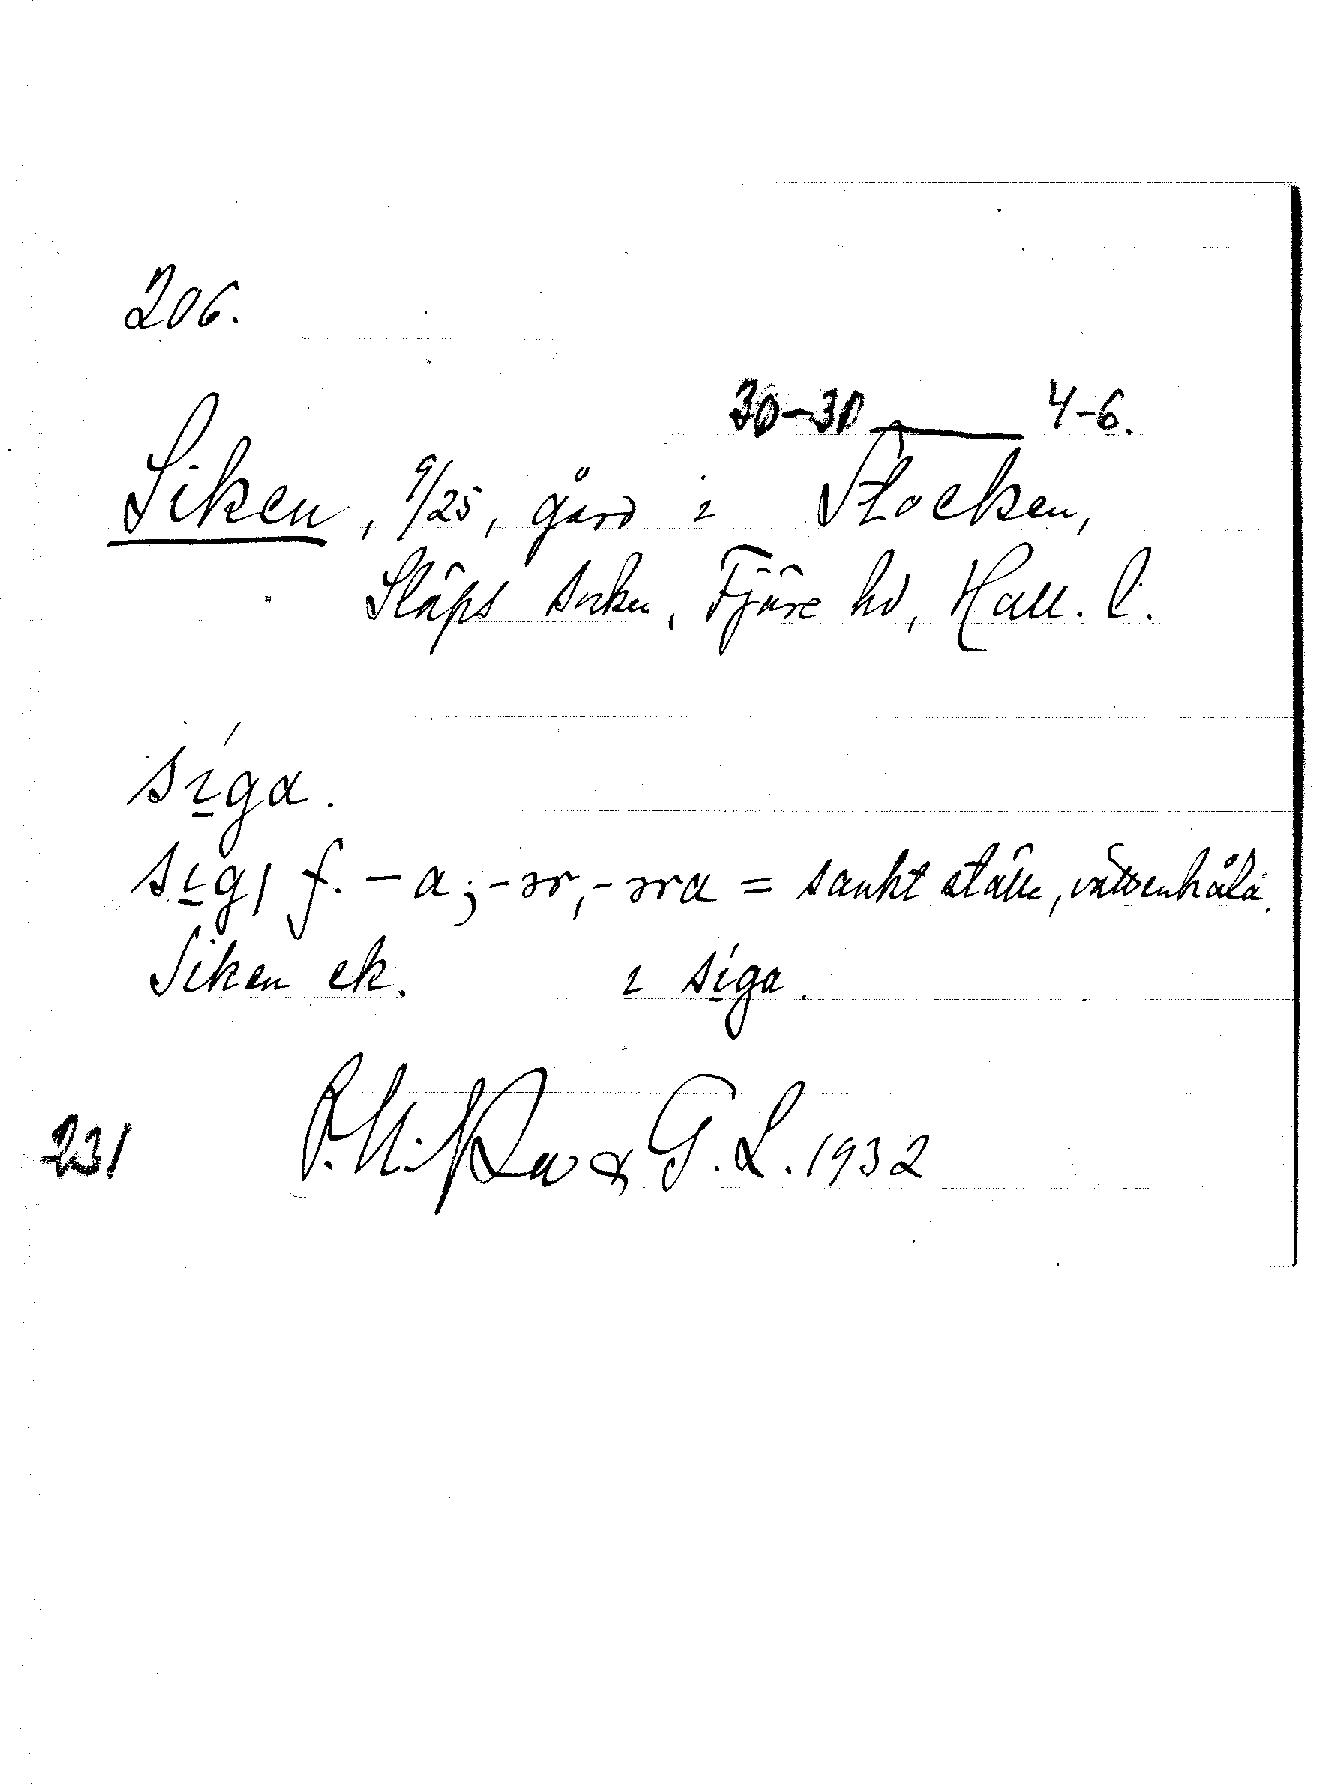 206.
30-30 — 4-6.
Siken, 9/25, gård i Stocken,
Släps socken, Fjäre hd, Hall. l.
si̱ga.
si̱g| f. -a; -ər, -əra = sankt ställe, vattenhåla.
Siken ek. i si̱ga.
231
& G. L. 1932